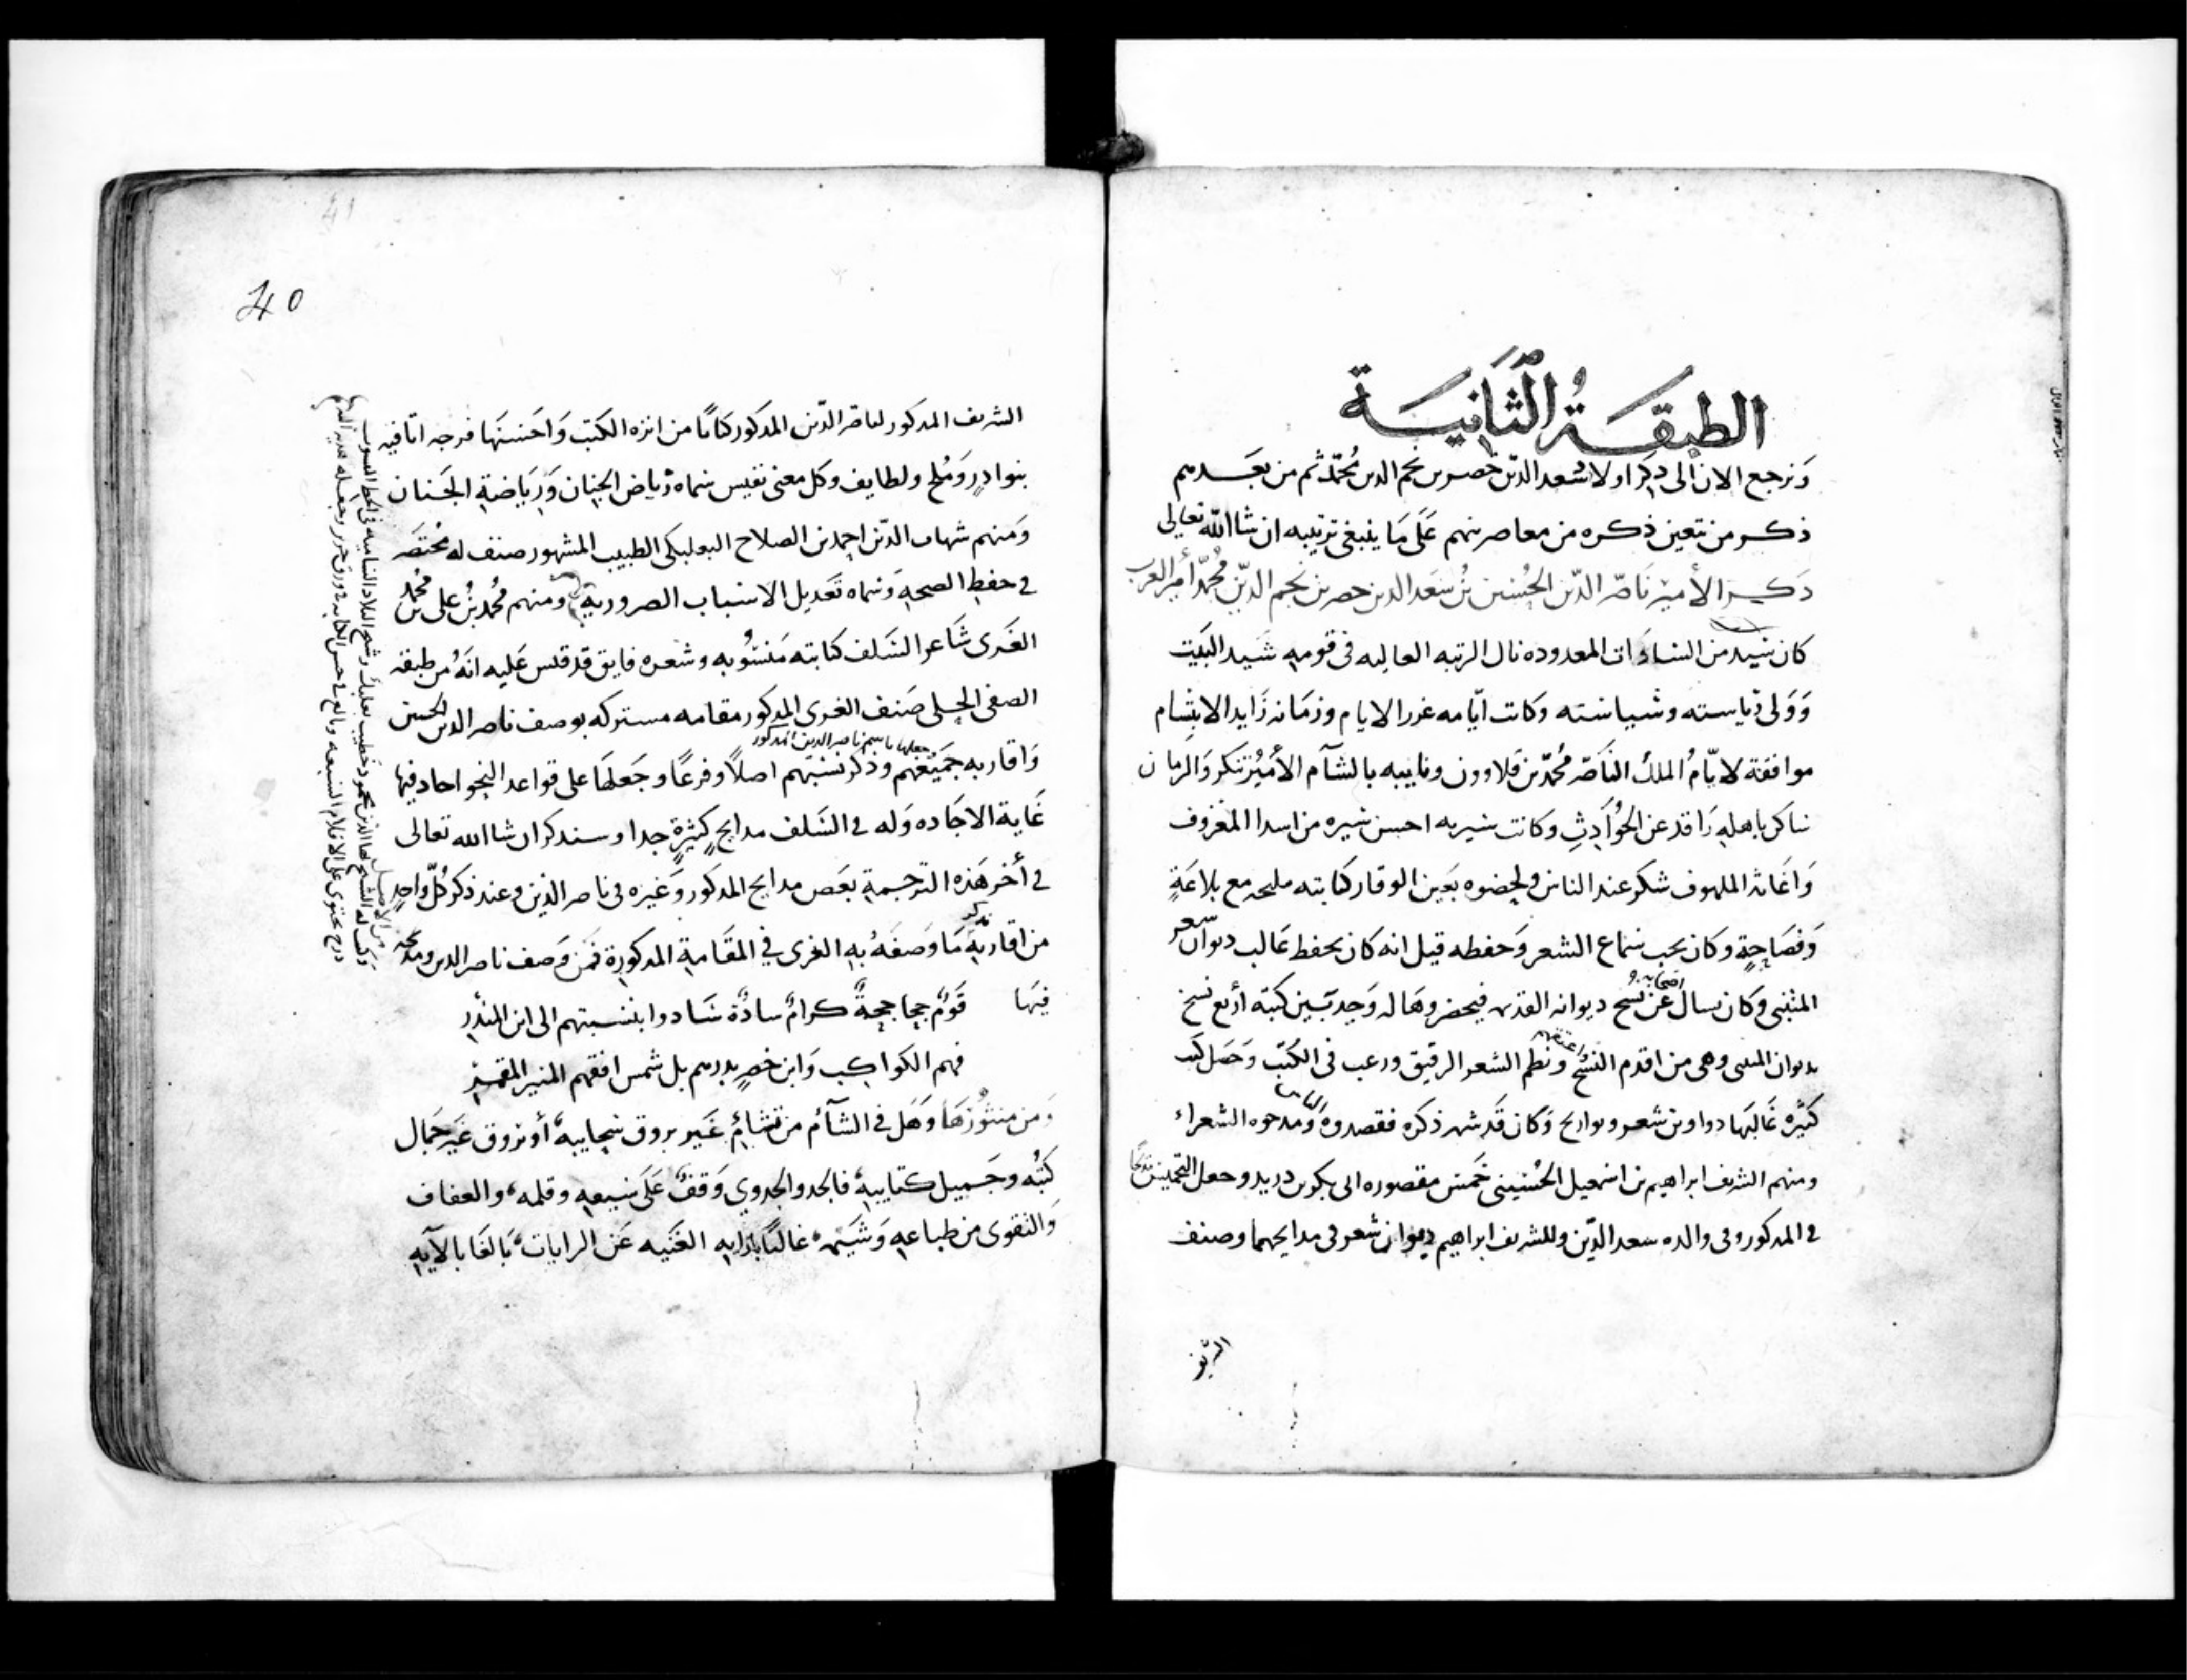 الطبقة الثانية
ونرجع الان الى ذكر اولاد سعد الدين خضر بن نجم الدين محمد ثم من بعدهم
ذكر من تعين ذكره من معاصرينهم على ما ينبغى ترتيبه ان شا الله تعالى
ذكر الأمير ناصر الدين الحسين بن سعد الدين خضر بن نجم الدين محمد أمير الغرب
كان سيد من السادات المعدوده نال الرتبه العاليه فى قومه شيد البيت
وولى رياسته وسياسته وكانت ايامه غرر الايام وزمانه زايد الابتسام
موافقة لايام الملك الناصر محمد بن قلاوون ونايبه بالشآم الأمير تنكز والزمان
ساكن باهله راقد عن الحوادث وكانت سيرته احسن سيره من اسدا المعروف
واغاثة الملهوف شكر عند الناس ولحضوه بعين الوقار كتابته مليحه مع بلاغة
وفصاحة وكان يحب سماع الشعر وحفظه قيل انه كان يحفظ غالب ديوان شعر
المتنبى وكان يسال اصحابه عن نسخ ديوانه القديمه فيحضروها له وجد بين كتبه أربع نسخ
بديوان المتنبى وهى من اقدم النسخ ونظم الشعر الرقيق ورغب فى الكتب وحصل كتب
كثيره غالبها دواوين شعر وتواريخ وكان قد شهر ذكره فقصدوه ومدحوه الشعراء
ومنهم الشريف ابراهيم بن اسمعيل الحسينى خمس مقصوره ابى بكر بن دريد وجعل التخميس مديحا
فى المذكور وفى والده سعد الدين وللشريف ابراهيم ديوان شعر فى مدايحهما وصنف
الشريف
40
41
الشريف المذكور لناصر الدين المذكور كتابا من انزه الكتب واحسنها فرجه اتا فيه
بنوادر وملح ولطايف وكل معنى نفيس سماه رياض الجنان ورياضة الجنان
ومنهم شهاب الدين احمد بن الصلاح البعلبكى الطبيب المشهور صنف له مختصر
فى حفظ الصحة وسماه تعديل الاسباب الضرورية ومنهم محمد بن على بن محمد
الغزى شاعر السلف كتابته منسوبه وشعره فايق قد قيس عليه انه من طبقة
الصفى الحلى صنف الغزى المذكور مقامه مشتركه بوصف ناصر الدين الحسين
جعلها باسم ناصر الدين المذكور
واقاربه جميعهم وذكر نسبتهم اصلاً وفرعًا وجعلها على قواعد النحو اجاد فيها
غاية الاجاده وله فى السلف مدايح كثيرة جدا وسنذكر ان شا الله تعالى
فى أخر هذه الترجمة بعض مدايح المذكور وغيره فى ناصر الدين وعند ذكر كل واحد
من اقاربه نذكر ما وصفه به الغزى في المقامة المذكورة فمن وصف ناصر الدين ومدحه
فيها قوم جحاجحة كرام سادة سادوا بنسبتهم الى ابن المنذر
فهم الكواكب وابن خضر بدرهم بل شمس افقهم المنير المقمر
ومن منثورها وهل فى الشآم من تشائم غير بروق سحايبه أو نزوق غير جمال
كتبه وجميل كتايبه فالجد والجدوى وقف على سيفه وقلمه والعفاف
والتقوى من طباعه وشيمه غالبا بارايه الغنيه عن الرايات بالغا بالآيه